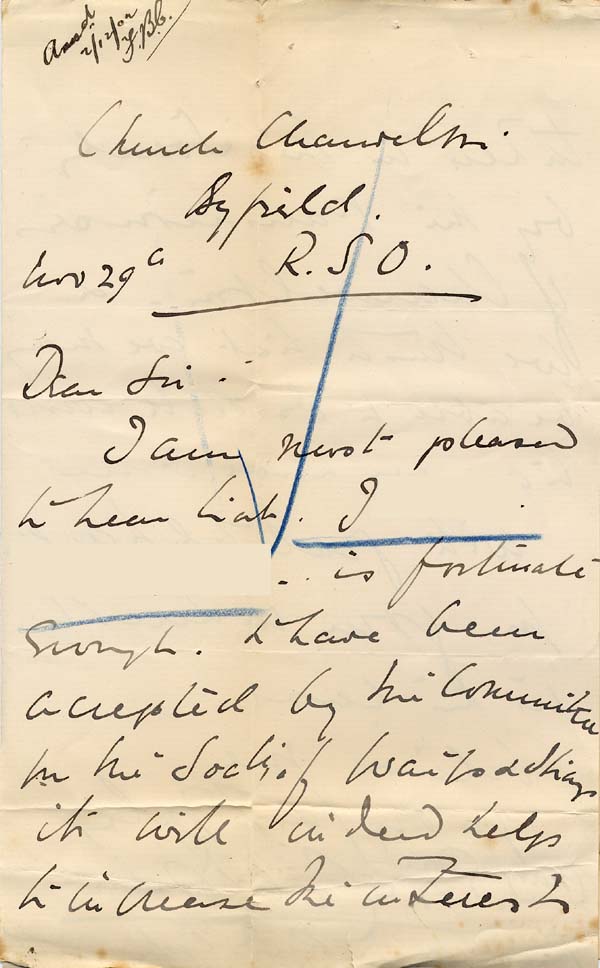 Ansd.
2/12/02
Church Charwelton
Byfield.
Nov 29th R.S.O.
Dear Sir
I am most pleased
to hear that J
is fortunate
enough to have been
accepted by the Committee
for the Socty. of Waifs & Strays
it will indeed help
to increase the interest